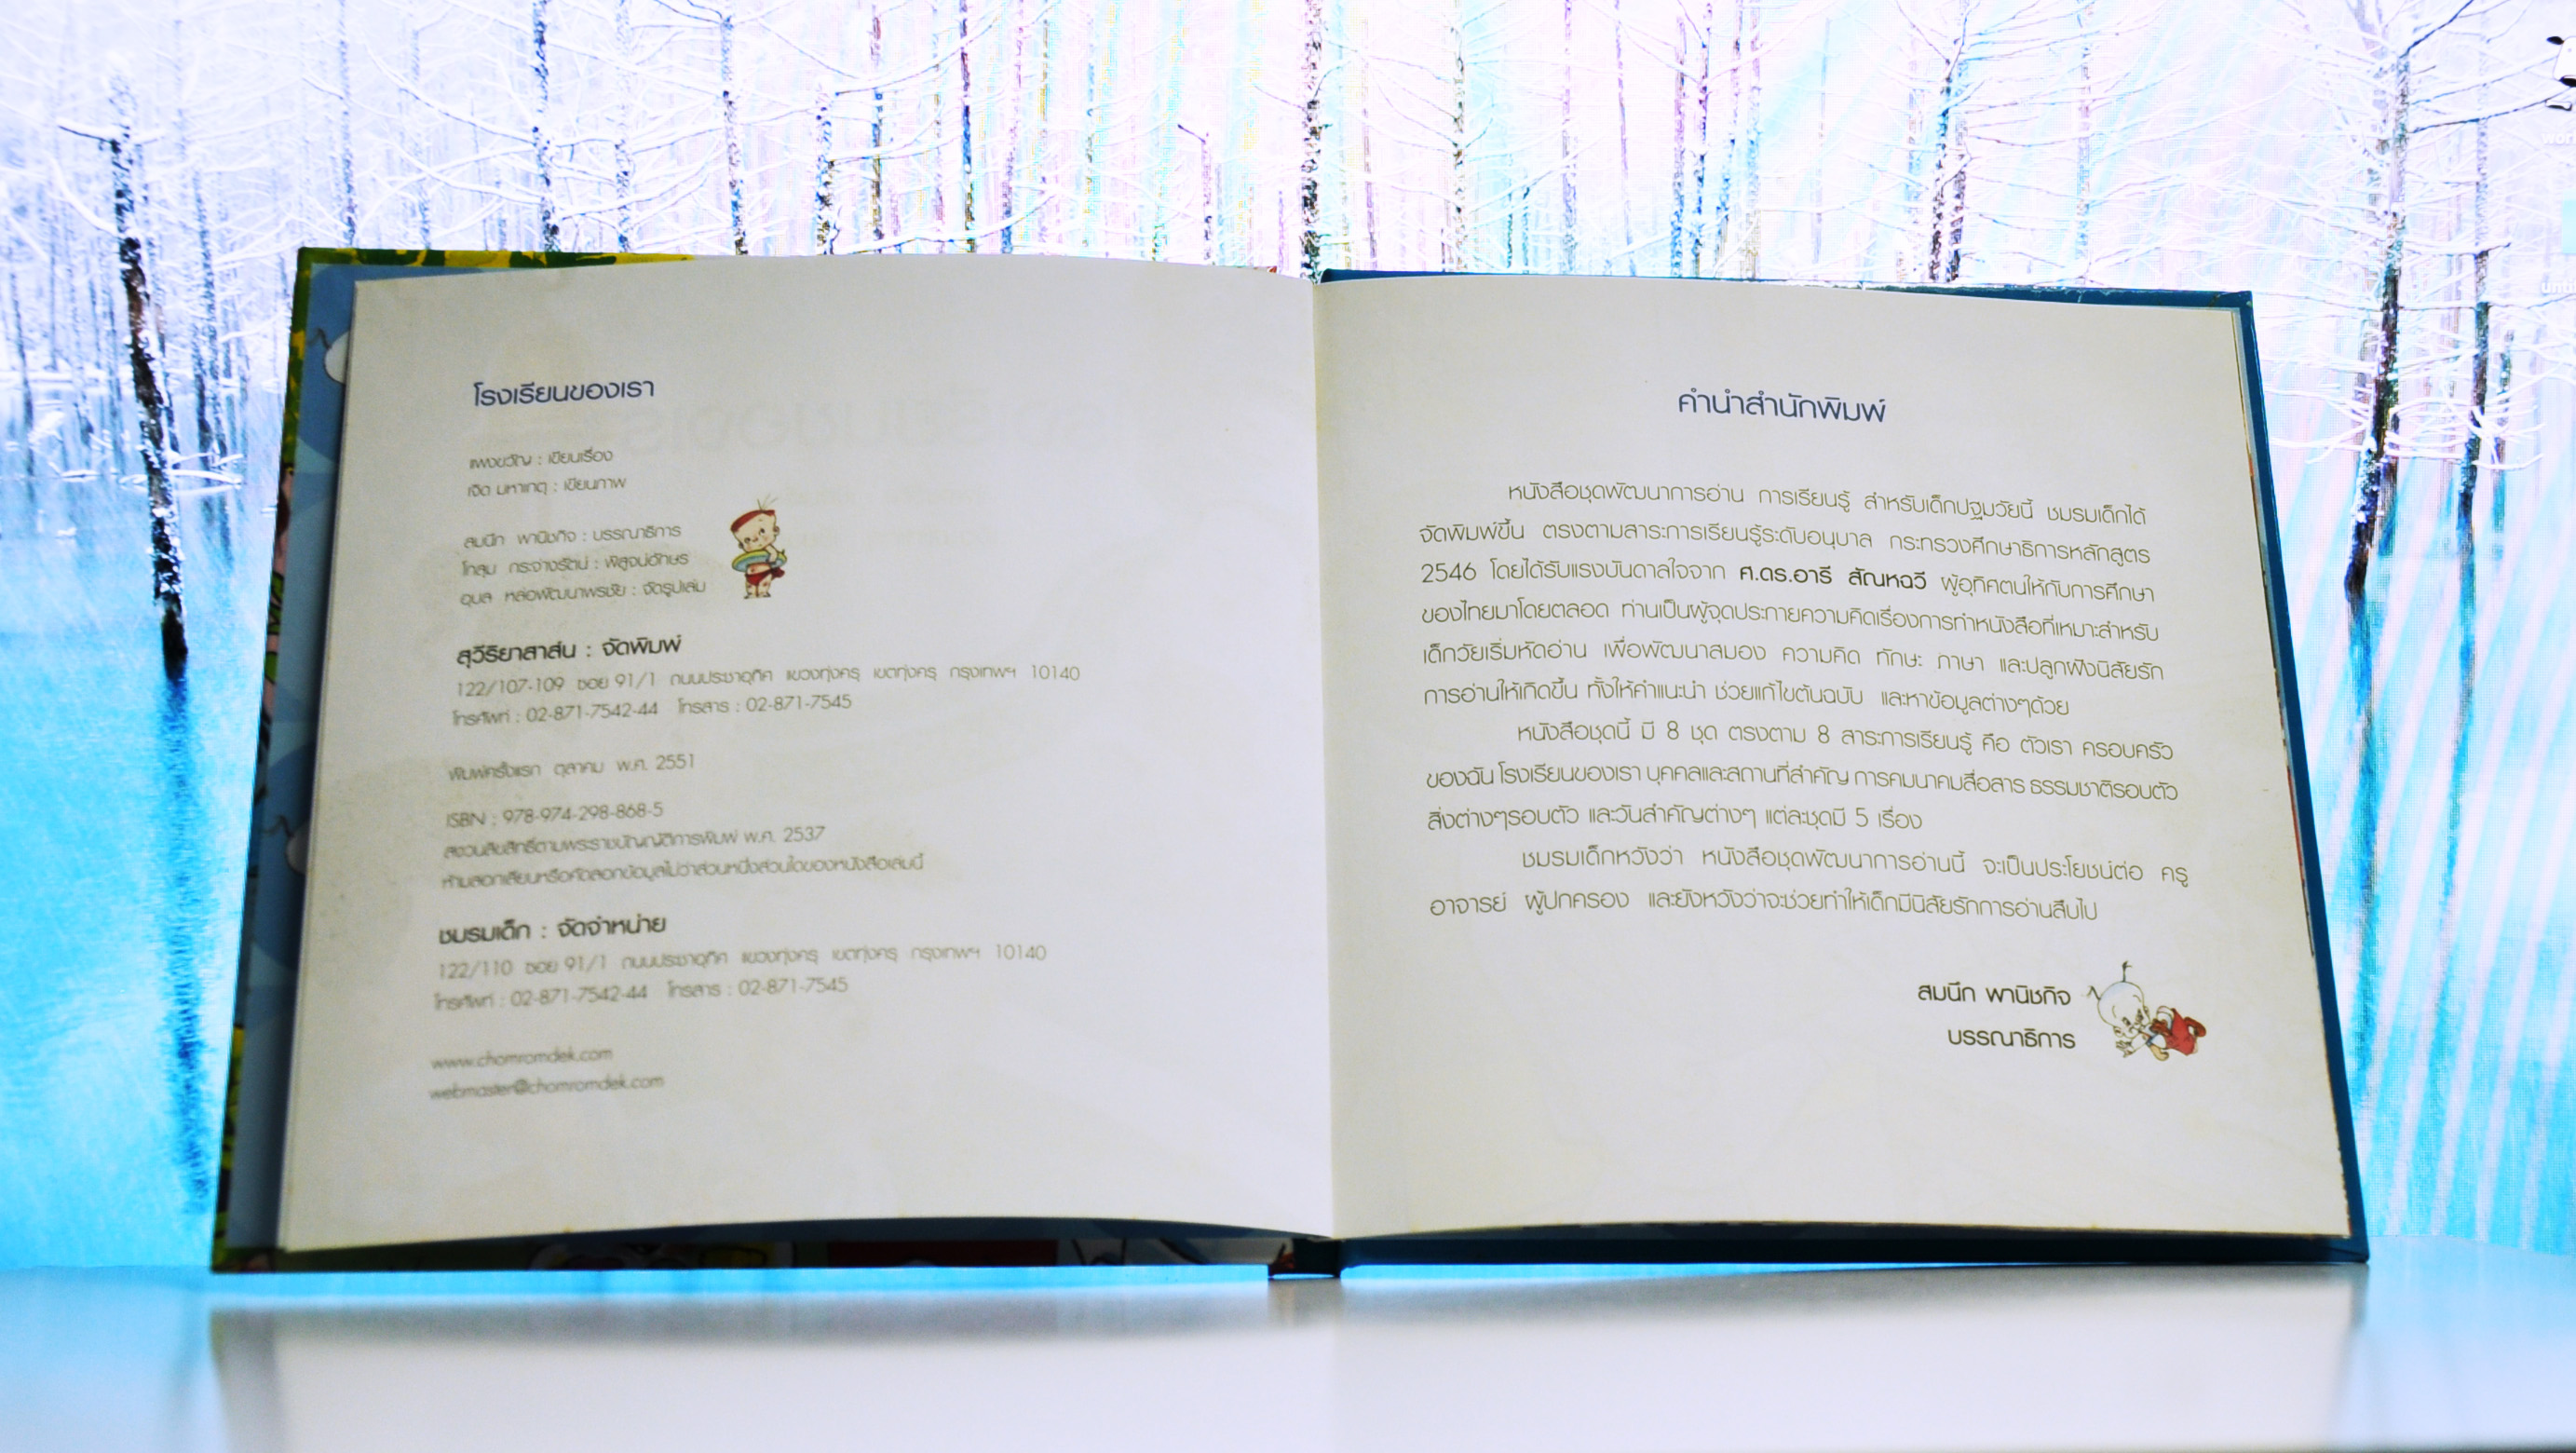 โรงเรียนของเรา
แพงขวัญ : เขียนเรื่อง
เจิด มหาเกตุ : เขียนภาพ
สมนึก พานิชกิจ : บรรณาธิการ
โกสุม กระจ่างรัตน์ : พิสูจน์อักษร
อุบล หล่อพัฒนาพรชัย : จัดรูปเล่ม
สุวีริยาสาส์น : จัดพิมพ์
122/107-109 ซอย 91/1 ถนนประชาอุทิศ แขวงทุ่งครุ เขตทุ่งครุ กรุงเทพฯ 10140
โทรศัพท์ : 02-871-7542-44 โทรสาร : 02-871-7545
พิมพ์ครั้งแรก ตุลาคม พ.ศ. 2551
ISBN : 978-974-298-868-5
สงวนลิขสิทธิ์ตามพระราชบัญญัติการพิมพ์ พ.ศ. 2537
ห้ามลอกเลียนหรือคัดลอกข้อมูลไม่ว่าส่วนหนึ่งส่วนใดของหนังสือเล่มนี้
ชมรมเด็ก : จัดจำหน่าย
122/110 ซอย 91/1 ถนนประชาอุทิศ แขวงทุ่งครุ เขตทุ่งครุ กรุงเทพฯ 10140
โทรศัพท์ : 02-871-7542-44 โทรสาร : 02-871-7545
www.chomromdek.com
webmaster@chomromdek.com
คำนำสำนักพิมพ์
หนังสือชุดพัฒนาการอ่าน การเรียนรู้ สำหรับเด็กปฐมวัยนี้ ชมรมเด็กได้
จัดพิมพ์ขึ้น ตรงตามสาระการเรียนรู้ระดับอนุบาล กระทรวงศึกษาธิการหลักสูตร
2546 โดยได้รับแรงบันดาลใจจาก ศ.ดร.อารี สัณหฉวี ผู้อุทิศตนให้กับการศึกษา
ของไทยมาโดยตลอด ท่านเป็นผู้จุดประกายความคิดเรื่องการทำหนังสือที่เหมาะสำหรับ
เด็กวัยเริ่มหัดอ่าน เพื่อพัฒนาสมอง ความคิด ทักษะ ภาษา และปลูกฝังนิสัยรัก
การอ่านให้เกิดขึ้น ทั้งให้คำแนะนำ ช่วยแก้ไขต้นฉบับ และหาข้อมูลต่างๆด้วย
หนังสือชุดนี้ มี 8 ชุด ตรงตาม 8 สาระการเรียนรู้ คือ ตัวเรา ครอบครัว
ของฉัน โรงเรียนของเรา บุคคลและสถานที่สำคัญ การคมนาคมสื่อสาร ธรรมชาติรอบตัว
สิ่งต่างๆรอบตัว และวันสำคัญต่างๆ แต่ละชุดมี 5 เรื่อง
ชมรมเด็กหวังว่า หนังสือชุดพัฒนาการอ่านนี้ จะเป็นประโยชน์ต่อ ครู
อาจารย์ ผู้ปกครอง และยังหวังว่าจะช่วยทำให้เด็กมีนิสัยรักการอ่านสืบไป
สมนึก พานิชกิจ
บรรณาธิการ